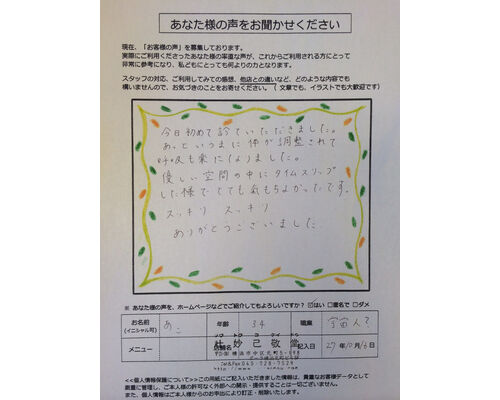 あなた様の声をお聞かせください
現在、「お客様の声」を募集しております。
実際にご利用くださったあなた様の率直な声が、これからご利用される方にとって
非常に参考になり、私どもにとっても何よりの力となります。
スタッフの対応、ご利用してみての感想、他店との違いなど、どのような内容でも
構いませんので、お気づきのことをお寄せください。（文章でも、イラストでも大歓迎です）
今日初めて診ていただきました。
あっというまに体が調整されて
呼吸も楽になりました。
優しい空間の中にタイムスリップ
した様でとても気もちよかったです。
スッキリ スッキリ
ありがとうございました
※ あなた様の声を、ホームページなどでご紹介してもよろしいですか？ ☑はい □匿名で □ダメ
お名前 あこ 年齢 34 職業 宇宙人？
(イニシャル可)
メニュー 記入日 27年10月6日
Tel&Fax 045-728-7529
<<個人情報保護について>>この用紙にご記入いただきました情報は、貴重なお客様データとして
厳重に管理し、ご本人様の許可なく外部への開示・提供することは一切ございません。
また、個人情報はご本人様からのお申出により訂正・削除いたします。